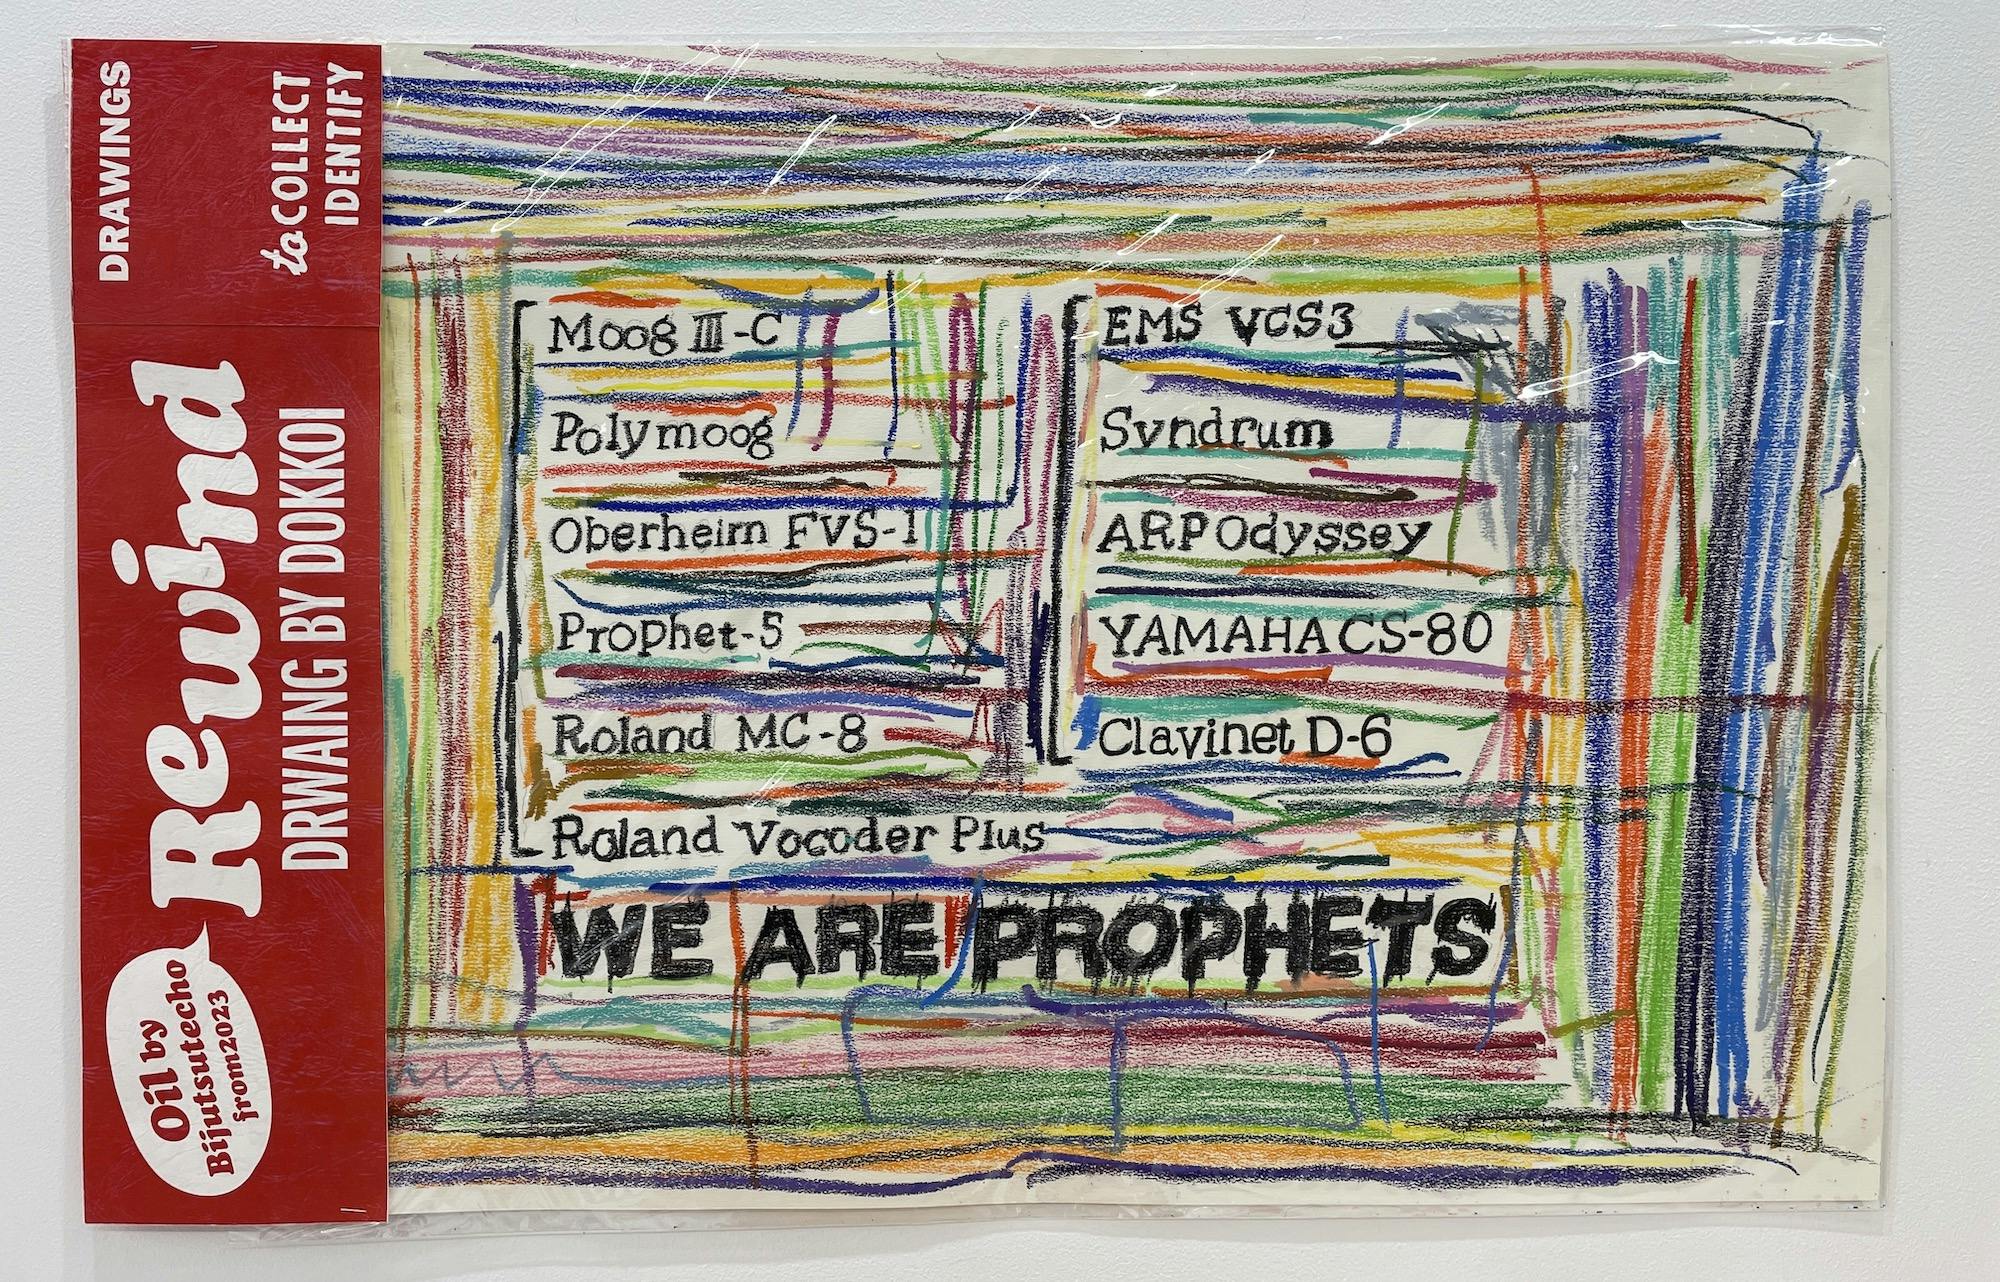 DRAWINGS
to COLLECT
IDENTIFY
Rewind
DRWAING BY DOKKOI
Oil by
Bijutsutecho
from2023
Moog III-C
Polymoog
Oberheim FVS-1
Prophet-5
Roland MC-8
Roland Vocoder Plus
EMS VCS3
Syndrum
ARP Odyssey
YAMAHA CS-80
Clavinet D-6
WE ARE PROPHETS